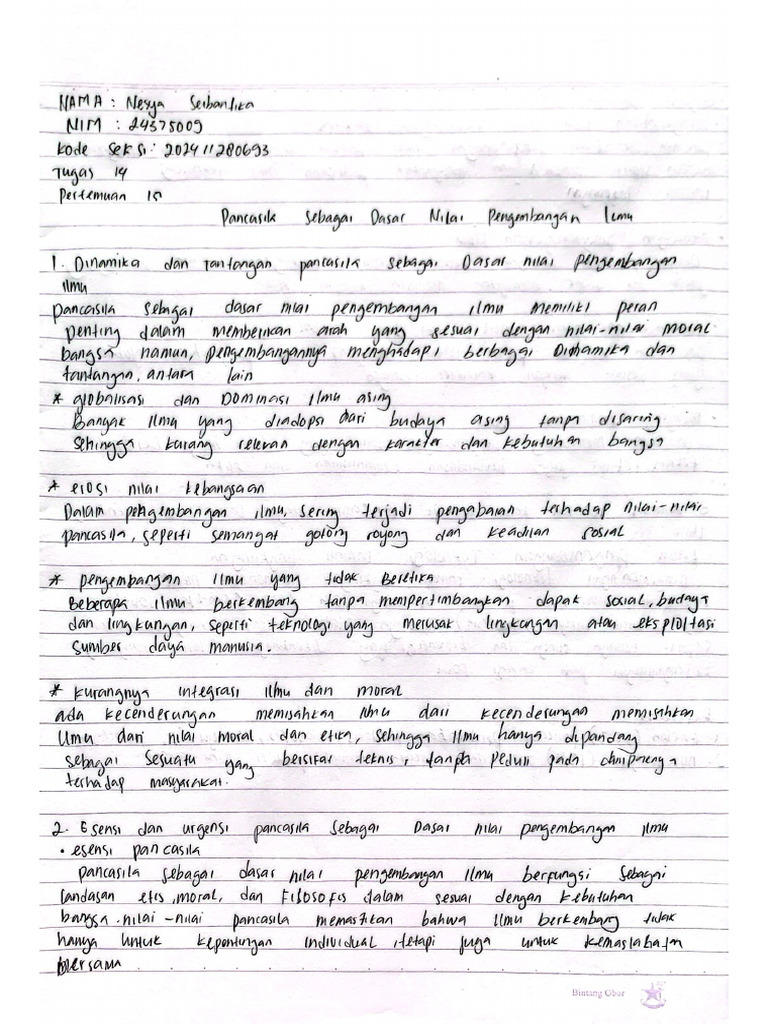 NAMA : Nesya Seibantika
NIM : 24375009
Kode Seksi : 202411280693
Tugas 14
Pertemuan 15
Pancasila Sebagai Dasar Nilai Pengembangan Ilmu
1. Dinamika dan Tantangan pancasila sebagai Dasar nilai pengembangan
ilmu
pancasila sebagai dasar nilai pengembangan ilmu memiliki peran
penting dalam memberikan arah yang sesuai dengan nilai-nilai moral
bangsa namun, pengembangannya menghadapi berbagai Dinamika dan
tantangan, antara lain
* globalisasi dan Dominasi ilmu asing
Banyak ilmu yang diadopsi dari budaya asing tanpa disaring
sehingga kurang relevan dengan karakter dan kebutuhan bangsa
* erosi nilai kebangsaan
Dalam pengembangan ilmu, sering terjadi pengabaian terhadap nilai-nilai
pancasila, seperti semangat gotong royong dan keadilan sosial
* pengembangan ilmu yang tidak Beretika
Beberapa ilmu berkembang tanpa mempertimbangkan dapak sosial, budaya
dan lingkungan, seperti teknologi yang merusak lingkungan atau eksploitasi
sumber daya manusia.
* kurangnya integrasi ilmu dan moral
ada kecenderungan memisahkan ilmu dari kecenderungan memisahkan
ilmu dari nilai moral dan etika, sehingga ilmu hanya dipandang
sebagai sesuatu yang bersifat teknis, tanpa peduli pada
terhadap masyarakat.
2. Esensi dan urgensi pancasila sebagai Dasar nilai pengembangan ilmu
• esensi pancasila
pancasila sebagai dasar nilai pengembangan ilmu berfungsi sebagai
landasan etis, moral, dan filosofis dalam sesuai dengan kebutuhan
bangsa. nilai-nilai pancasila memastikan bahwa ilmu berkembang tidak
hanya untuk kepentingan individual, tetapi juga untuk kemaslahatan
bersama
Bintang Obor